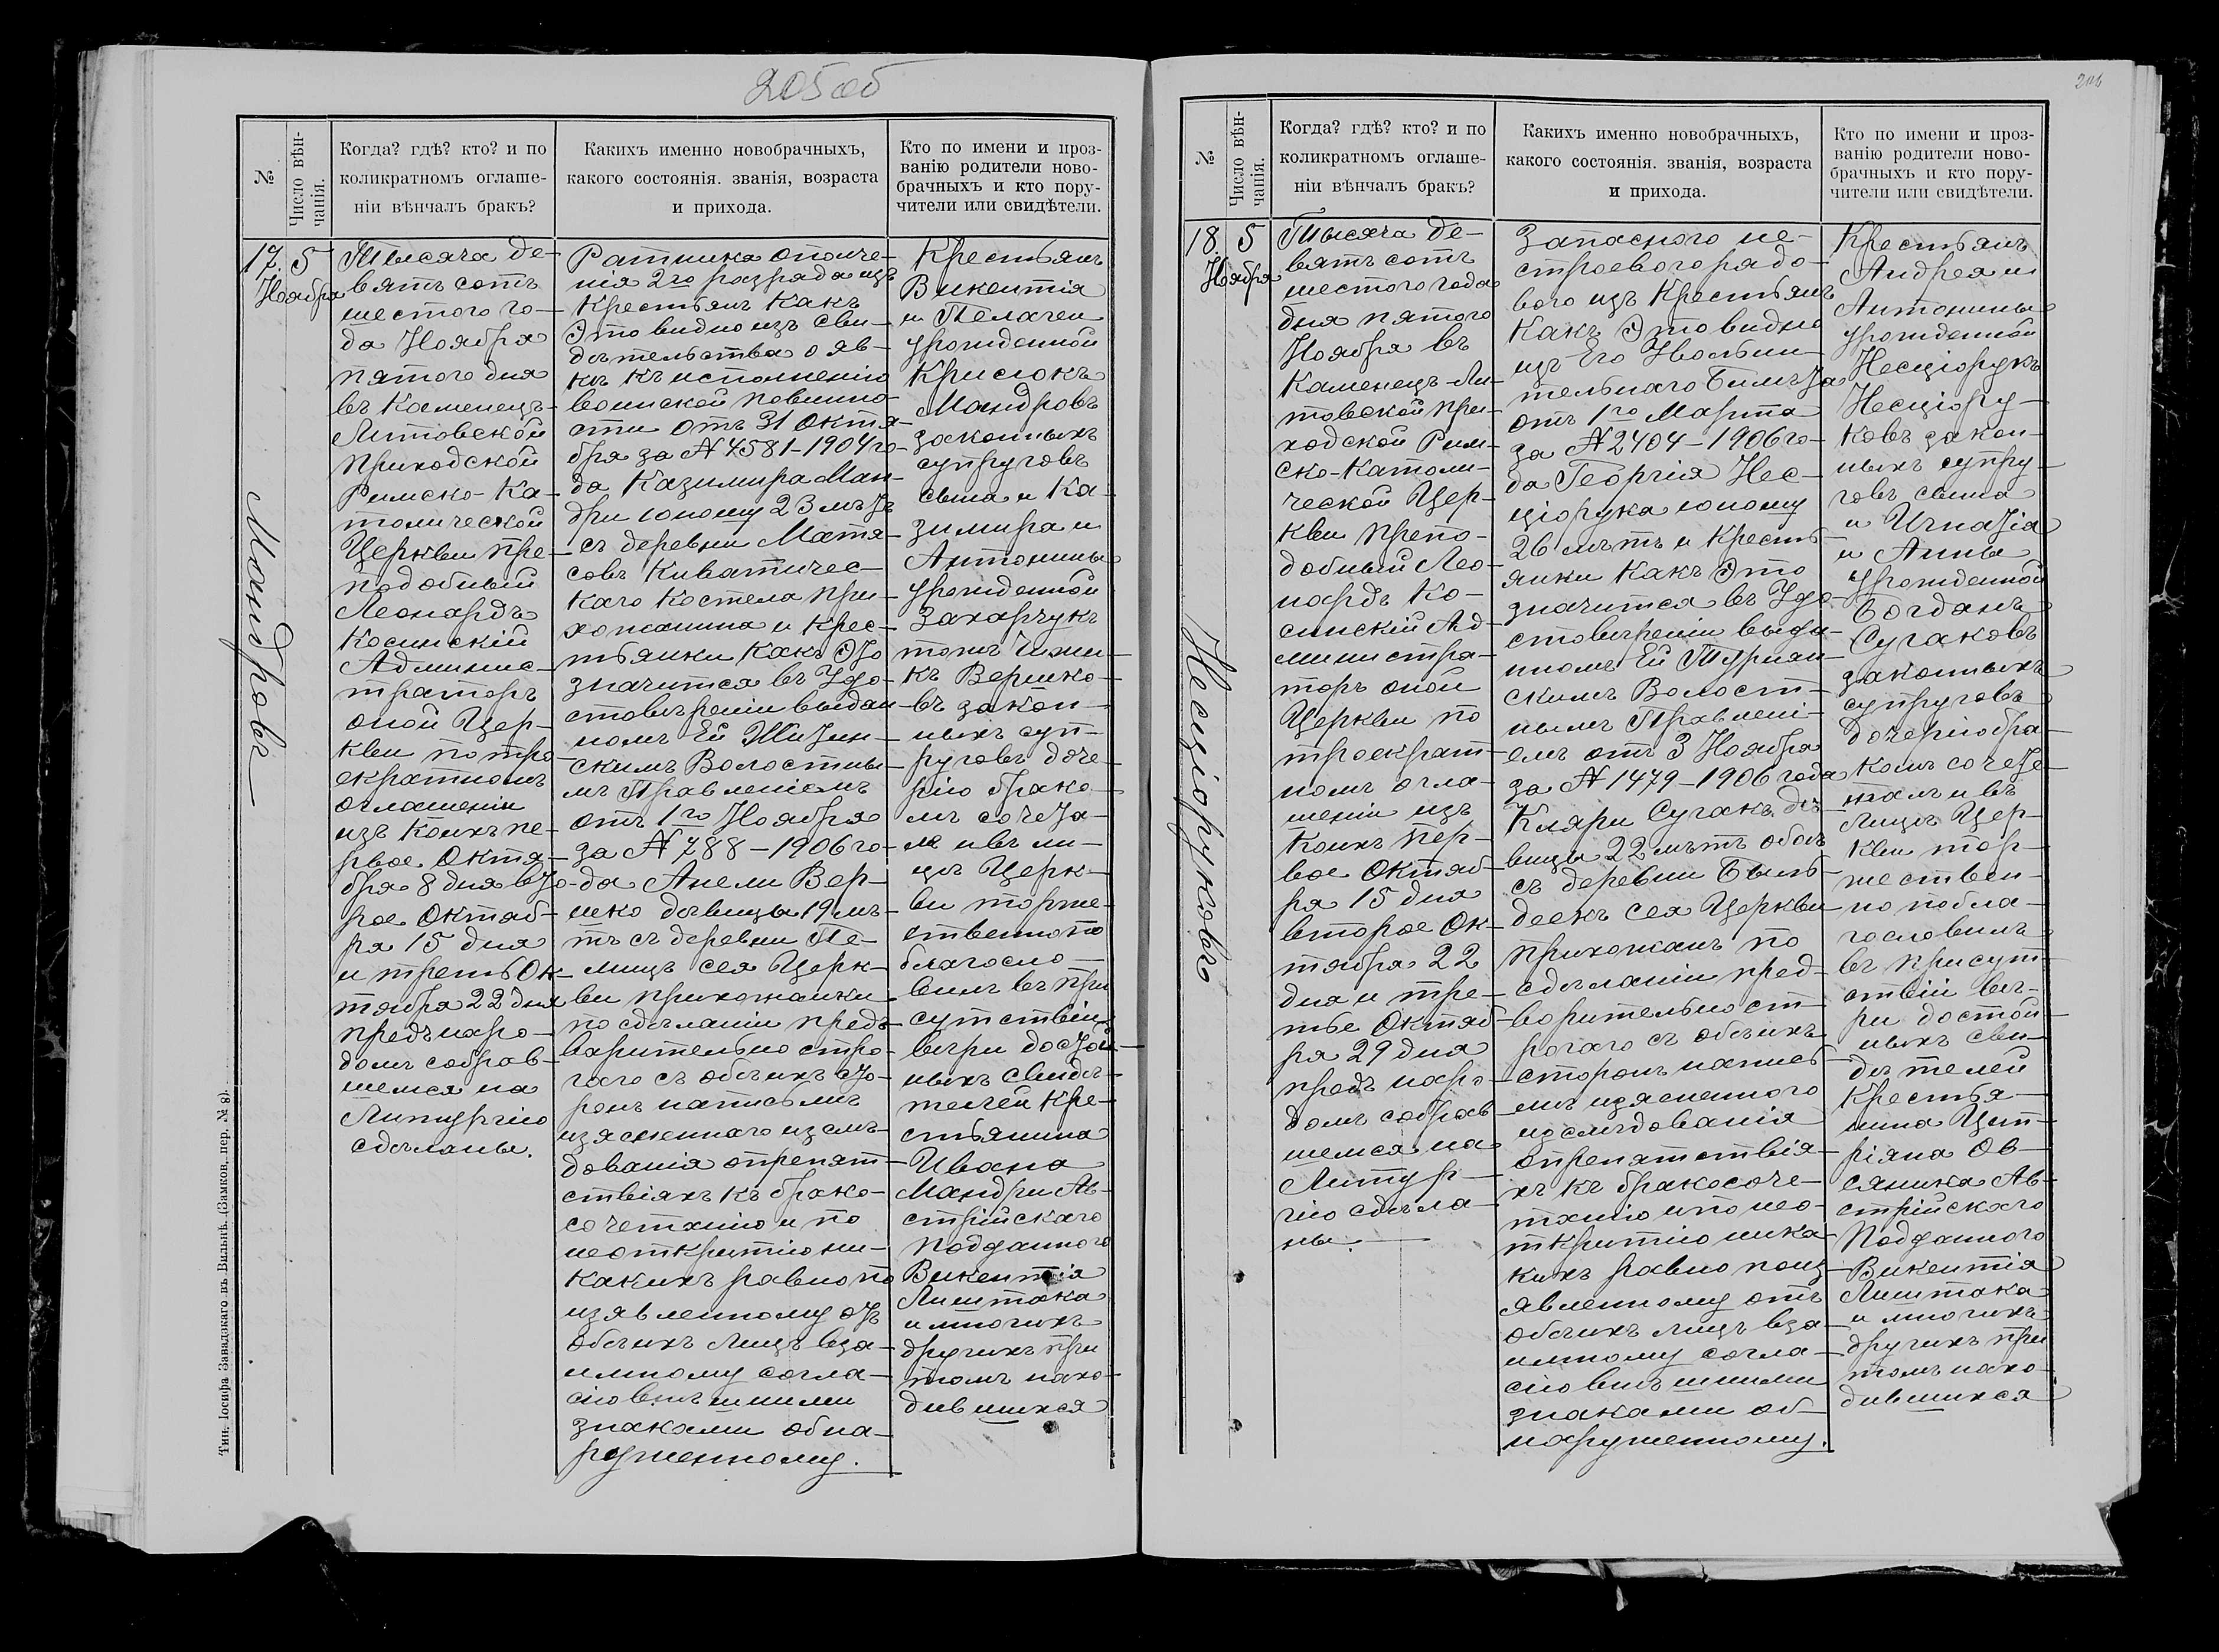 205 об
№
Число вѣн-
чанія.
Когда? гдѣ? кто? и по
коликратномъ оглаше-
ніи вѣнчалъ бракъ?
Какихъ именно новобрачныхъ,
какого состоянія. званія, возраста
и прихода.
Кто по имени и проз-
ванію родители ново-
брачныхъ и кто пору-
чители или свидѣтели.
17.
5
Ноября
Мандровъ
Тысяча де-
вятъ сотъ
шестого го-
да Ноября
пятого дня
въ Каменецъ-
Литовской
приходской
Римско-Ка-
толической
Церкви пре-
подобный
Леонардъ
Косинскій
Админис-
траторъ
оной Цер-
кви по тро-
екратномъ
оглашеніи
изъ коихъ пе-
рвое Октя-
бря 8 дня вто-
рое Октяб-
ря 15 дня
и третье Ок-
тября 22 дня
предъ наро-
домъ собрав-
шемся на
Литургію
сдѣланы.
Ратника ополче-
нія 2го разряда изъ
Крестьянъ Какъ
Это видно изъ сви-
дѣтельства о яв-
кѣ къ исполненію
воинской повинно-
сти отъ 31 Октя-
бря за № 4581-1904 го-
да Казимира Ман-
дри юному 23 лѣтъ
съ деревни Матя-
совъ Киватичес-
каго Костела при-
хожанина и Крес-
тьянки Какъ Это
значится въ Удо-
стовѣреніи выдан-
номъ Ей Житин-
скимъ Волостны-
мъ Правленіемъ
отъ 1го Ноября
за № 788-1906 го-
да Анели Вер-
шко дѣвицы 19 лѣ-
тъ съ деревни Пе-
лищъ сея Церк-
ви прихожанки
по сдѣланіи предъ-
варительно стро-
гаго съ обѣихъ сто-
ронъ написьмѣ
изясненнаго изслѣ-
дованія опрепят-
ствіяхъ къ брако-
сочетанію и по
неоткрытію ни-
какихъ равно по
изявленному отъ
обѣихъ лицъ вза-
имному согла-
сію внѣшними
знаками обна-
руженному.
Крестьянъ
Викентія
и Пелагеи
урожденной
Крисюкъ
Мандровъ
законныхъ
супруговъ
сына и Ка-
зимира и
Антонины
урожденной
Захарчукъ
Вершко-
въ закон-
ныхъ суп-
руговъ доче-
рію брако-
мъ сочета-
лъ ивъ ли-
цѣ Церк-
ви торже-
ственно по
благосло-
вилъ въ при
сутствіи
вѣри достой-
ныхъ свидѣ-
телей Кре-
стьянина
Ивана
Мандри Ав-
стрійскаго
подданного
Викентія
Лиштака
и многихъ
другихъ при
томъ нахо-
дившихся
Тип. Іосифа Завадзкаго въ Вильнѣ. (Замков. пер. № 8).
206
№
Число вѣн-
чанія.
Когда? гдѣ? кто? и по
коликратномъ оглаше-
ніи вѣнчалъ бракъ?
Какихъ именно новобрачныхъ,
какого состоянія. званія, возраста
и прихода.
Кто по имени и проз-
ванію родители ново-
брачныхъ и кто пору-
чители или свидѣтели.
18.
5
Ноября
Несціоруковъ
Тысяча де-
вятъ сотъ
шестого года
дня пятого
Ноября въ
Каменецъ-Ли-
товской при-
ходской Рим-
ско-Католи-
ческой Цер-
кви препо-
добный Лео-
нардъ Ко-
синскій Ад-
министра-
торъ оной
Церкви по
троекрат-
номъ огла-
шеніи изъ
коихъ пер-
вое Октяб-
ря 15 дня
второе Ок-
тября 22
дня и тре-
тье Октяб-
ря 29 дня
предъ наро-
домъ собрав-
шемся на
Литур-
гію сдѣла-
ны.
Запасного не-
строевого рядо-
вого изъ Крестьянъ
Какъ Это видно
изъ Его Увольни-
тельнаго Билета
отъ 1го Марта
за № 2404-1906 го-
да Георгія Нес-
ціорука юному
26 лѣтъ и Кресть-
янки Какъ Это
значится въ Удо-
стовѣреніи выда-
нномъ Ей Турнан-
скимъ Волост-
нымъ Правлені-
емъ отъ 3 Ноября
за № 1479-1906 года
Кляри Сугакъ дѣ-
вицы 22 лѣтъ обоѣ
съ деревни Быль-
деекъ сея Церкви
прихожанъ по
сдѣланіи пред-
ворительно ст-
рогаго съ обѣихъ
сторонъ напись-
мѣ изяснѣнного
изслѣдованія
опрепятствія-
хъ къ бракосоче-
танію и по нео-
ткрытію ника-
кихъ равно поиз-
явленному отъ
обѣихъ лицъ вза-
имному согла-
сію внѣшними
знаками об-
наруженному.
Крестьянъ
Андрея и
Антонины
урожденной
Несціорукъ
Несціору-
ковъ закон-
ныхъ супру-
говъ сына
и Игнатія
и Анны
урожденной
Богданъ
Сугаковъ
законныхъ
супруговъ
дочерію бра-
комъ сочете-
талъ и въ
лицѣ Цер-
кви тор-
жествен-
но побла-
гословилъ
въ присут-
ствіи вѣ-
ри достой-
ныхъ сви-
дѣтелей
Крестья-
нина Цип-
ріяна Ов-
сянika Ав-
стрійскаго
Подданного
Викентія
Лиштака
и многихъ
другихъ при
томъ нахо-
дившихся